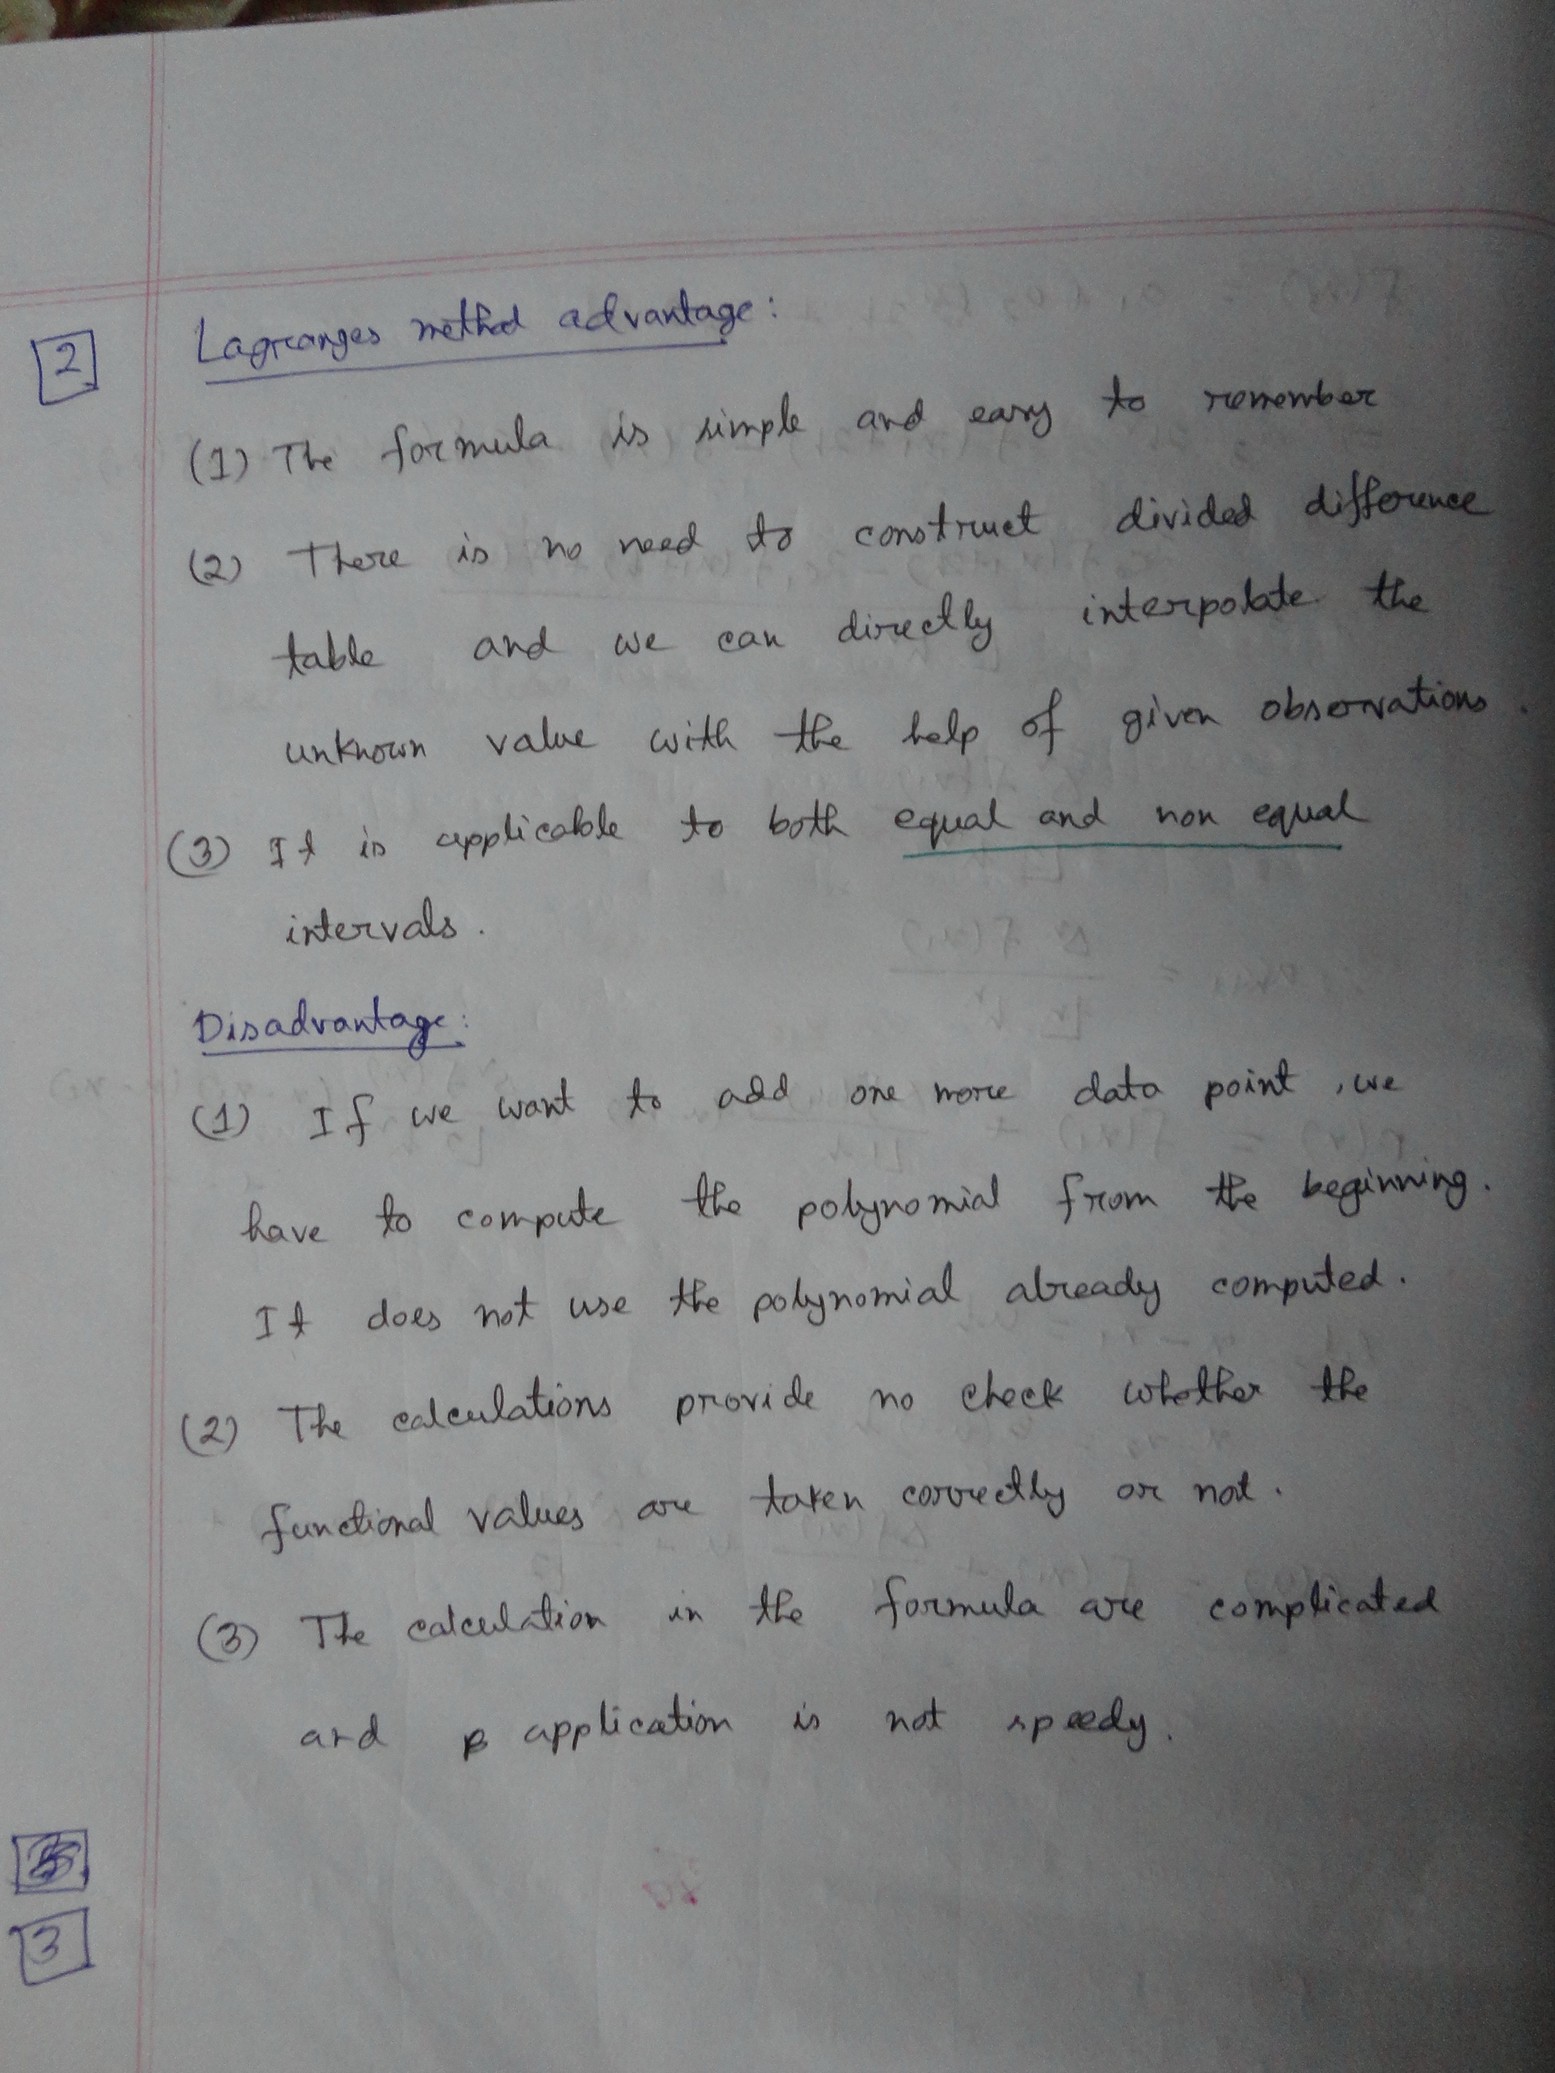 2
Lagranges method advantage:
(1) The formula is simple and easy to remember
(2) There is no need to construct divided difference
table and we can directly interpolate the
unknown value with the help of given observations.
(3) It is applicable to both equal and non equal
intervals.
Disadvantage:
(1) If we want to add one more data point, we
have to compute the polynomial from the beginning.
It does not use the polynomial already computed.
(2) The calculations provide no check whether the
functional values are taken correctly or not.
(3) The calculation in the formula are complicated
and application is not speedy.
3